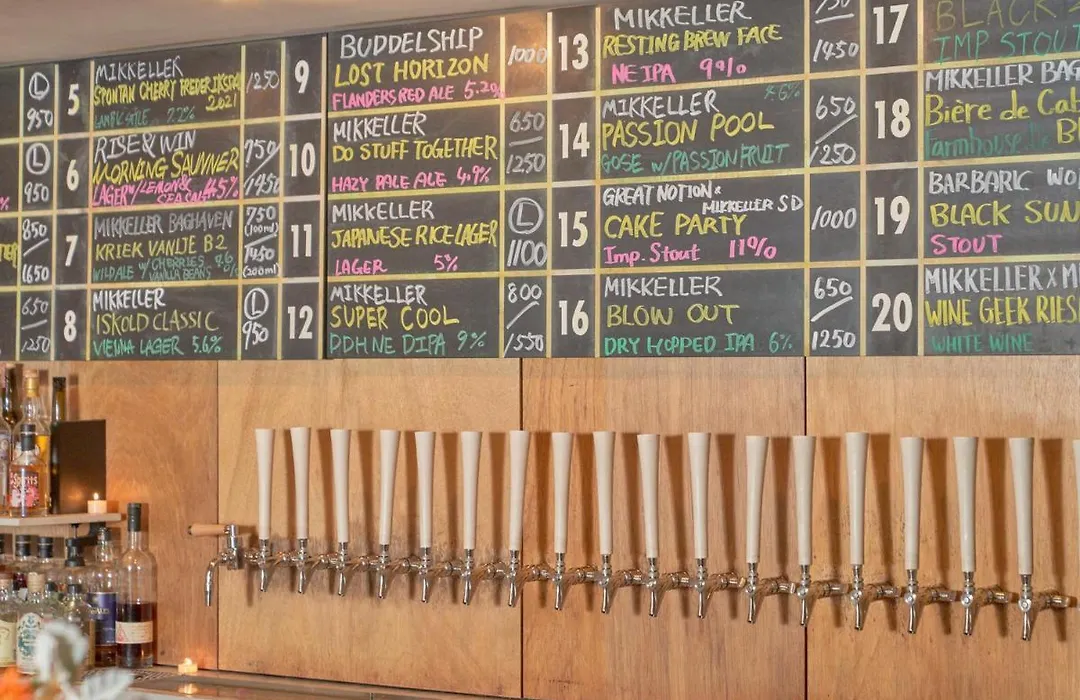 Ⓛ
950
5
MIKKELLER
SPONTAN CHERRY FREDERIKSDAL
2021
1250
Ⓛ
950
6
RISE & WIN
MORNING
LAGER W/ LEMON &
4.5%
750
1450
850
1650
7
MIKKELLER BAGHAVEN
KRIEK VANLJE B2
WILD ALE W/ CHERRIES
VANILLA BEANS
750
(100ml)
1450
(200ml)
650
1250
8
MIKKELLER
ISKOLD CLASSIC
VIENNA LAGER 5.6%
Ⓛ
950
9
BUDDELSHIP
LOST HORIZON
FLANDERS RED ALE 5.2%
1000
10
MIKKELLER
DO STUFF TOGETHER
HAZY PALE ALE 4.9%
650
1250
11
MIKKELLER
JAPANESE RICE LAGER
LAGER 5%
Ⓛ
1100
12
MIKKELLER
SUPER COOL
DDH NE DIPA 9%
800
1550
13
MIKKELLER
RESTING BREW FACE
NEIPA 9%
750
1450
14
MIKKELLER 4.6%
PASSION POOL
GOSE W/ PASSIONFRUIT
650
1250
15
GREAT NOTION &
MIKKELLER SD
CAKE PARTY
Imp. Stout 11%
1000
16
MIKKELLER
BLOW OUT
DRY HOPPED IPA 6%
650
1250
17
BLACK
IMP STOUT
18
MIKKELLER BAG
Bière de
Farmhouse
B
19
BARBARIC WO
BLACK SUN
STOUT
20
MIKKELLER X M
WINE GEEK RIES
WHITE WINE